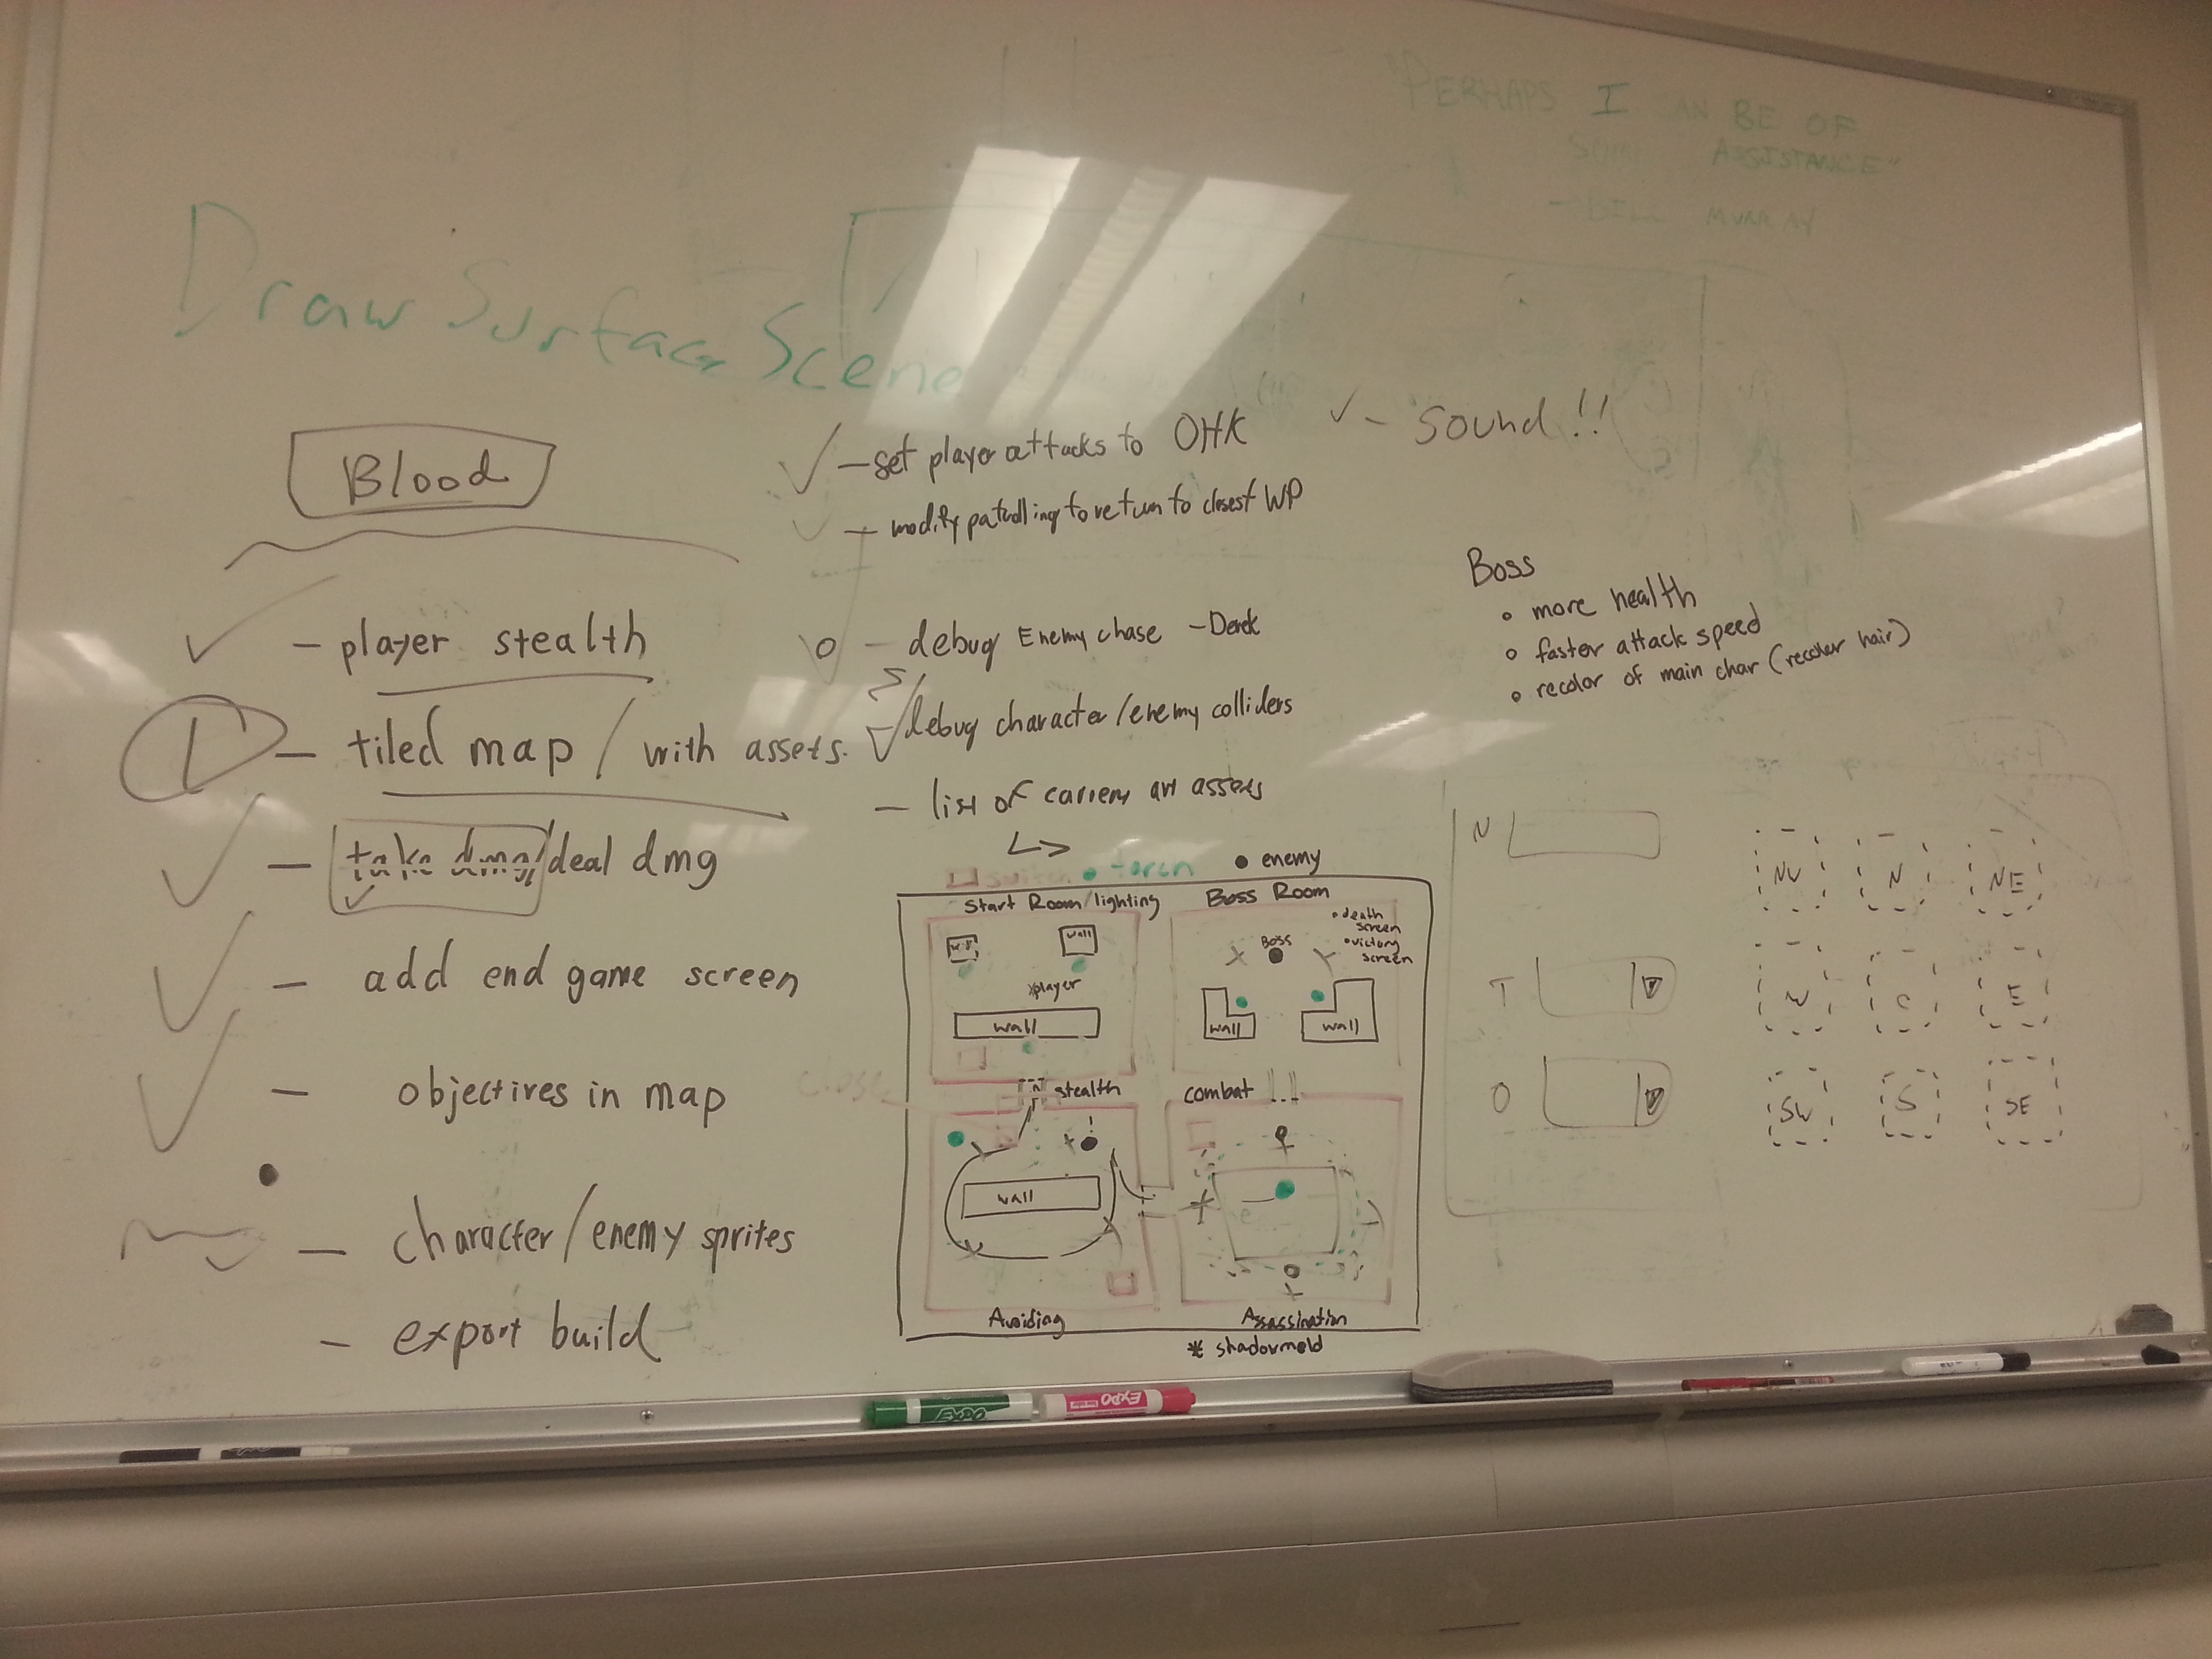 "PERHAPS I CAN BE OF
SOME ASSISTANCE"
- BILL MURRAY
Draw Surface Scene
Blood
- player stealth
1 - tiled map / with assets.
- take dmg/deal dmg
- add end game screen
- objectives in map
- character/enemy sprites
- export build
- set player attacks to OHK
- modify patrolling to return to closest WP
- debug Enemy chase - Derek
debug character/enemy colliders
- list of art assets
- sound!!
Boss
• more health
• faster attack speed
• recolor of main char (recolor hair)
switch • torch • enemy
Start Room/lighting
wall
player
wall
Boss Room
• death screen
• victory screen
Boss
wall wall
close
stealth
combat
wall
Avoiding
Assassination
* shadowmeld
N
T
O
NW N NE
W C E
SW S SE
EXPO
EXPO